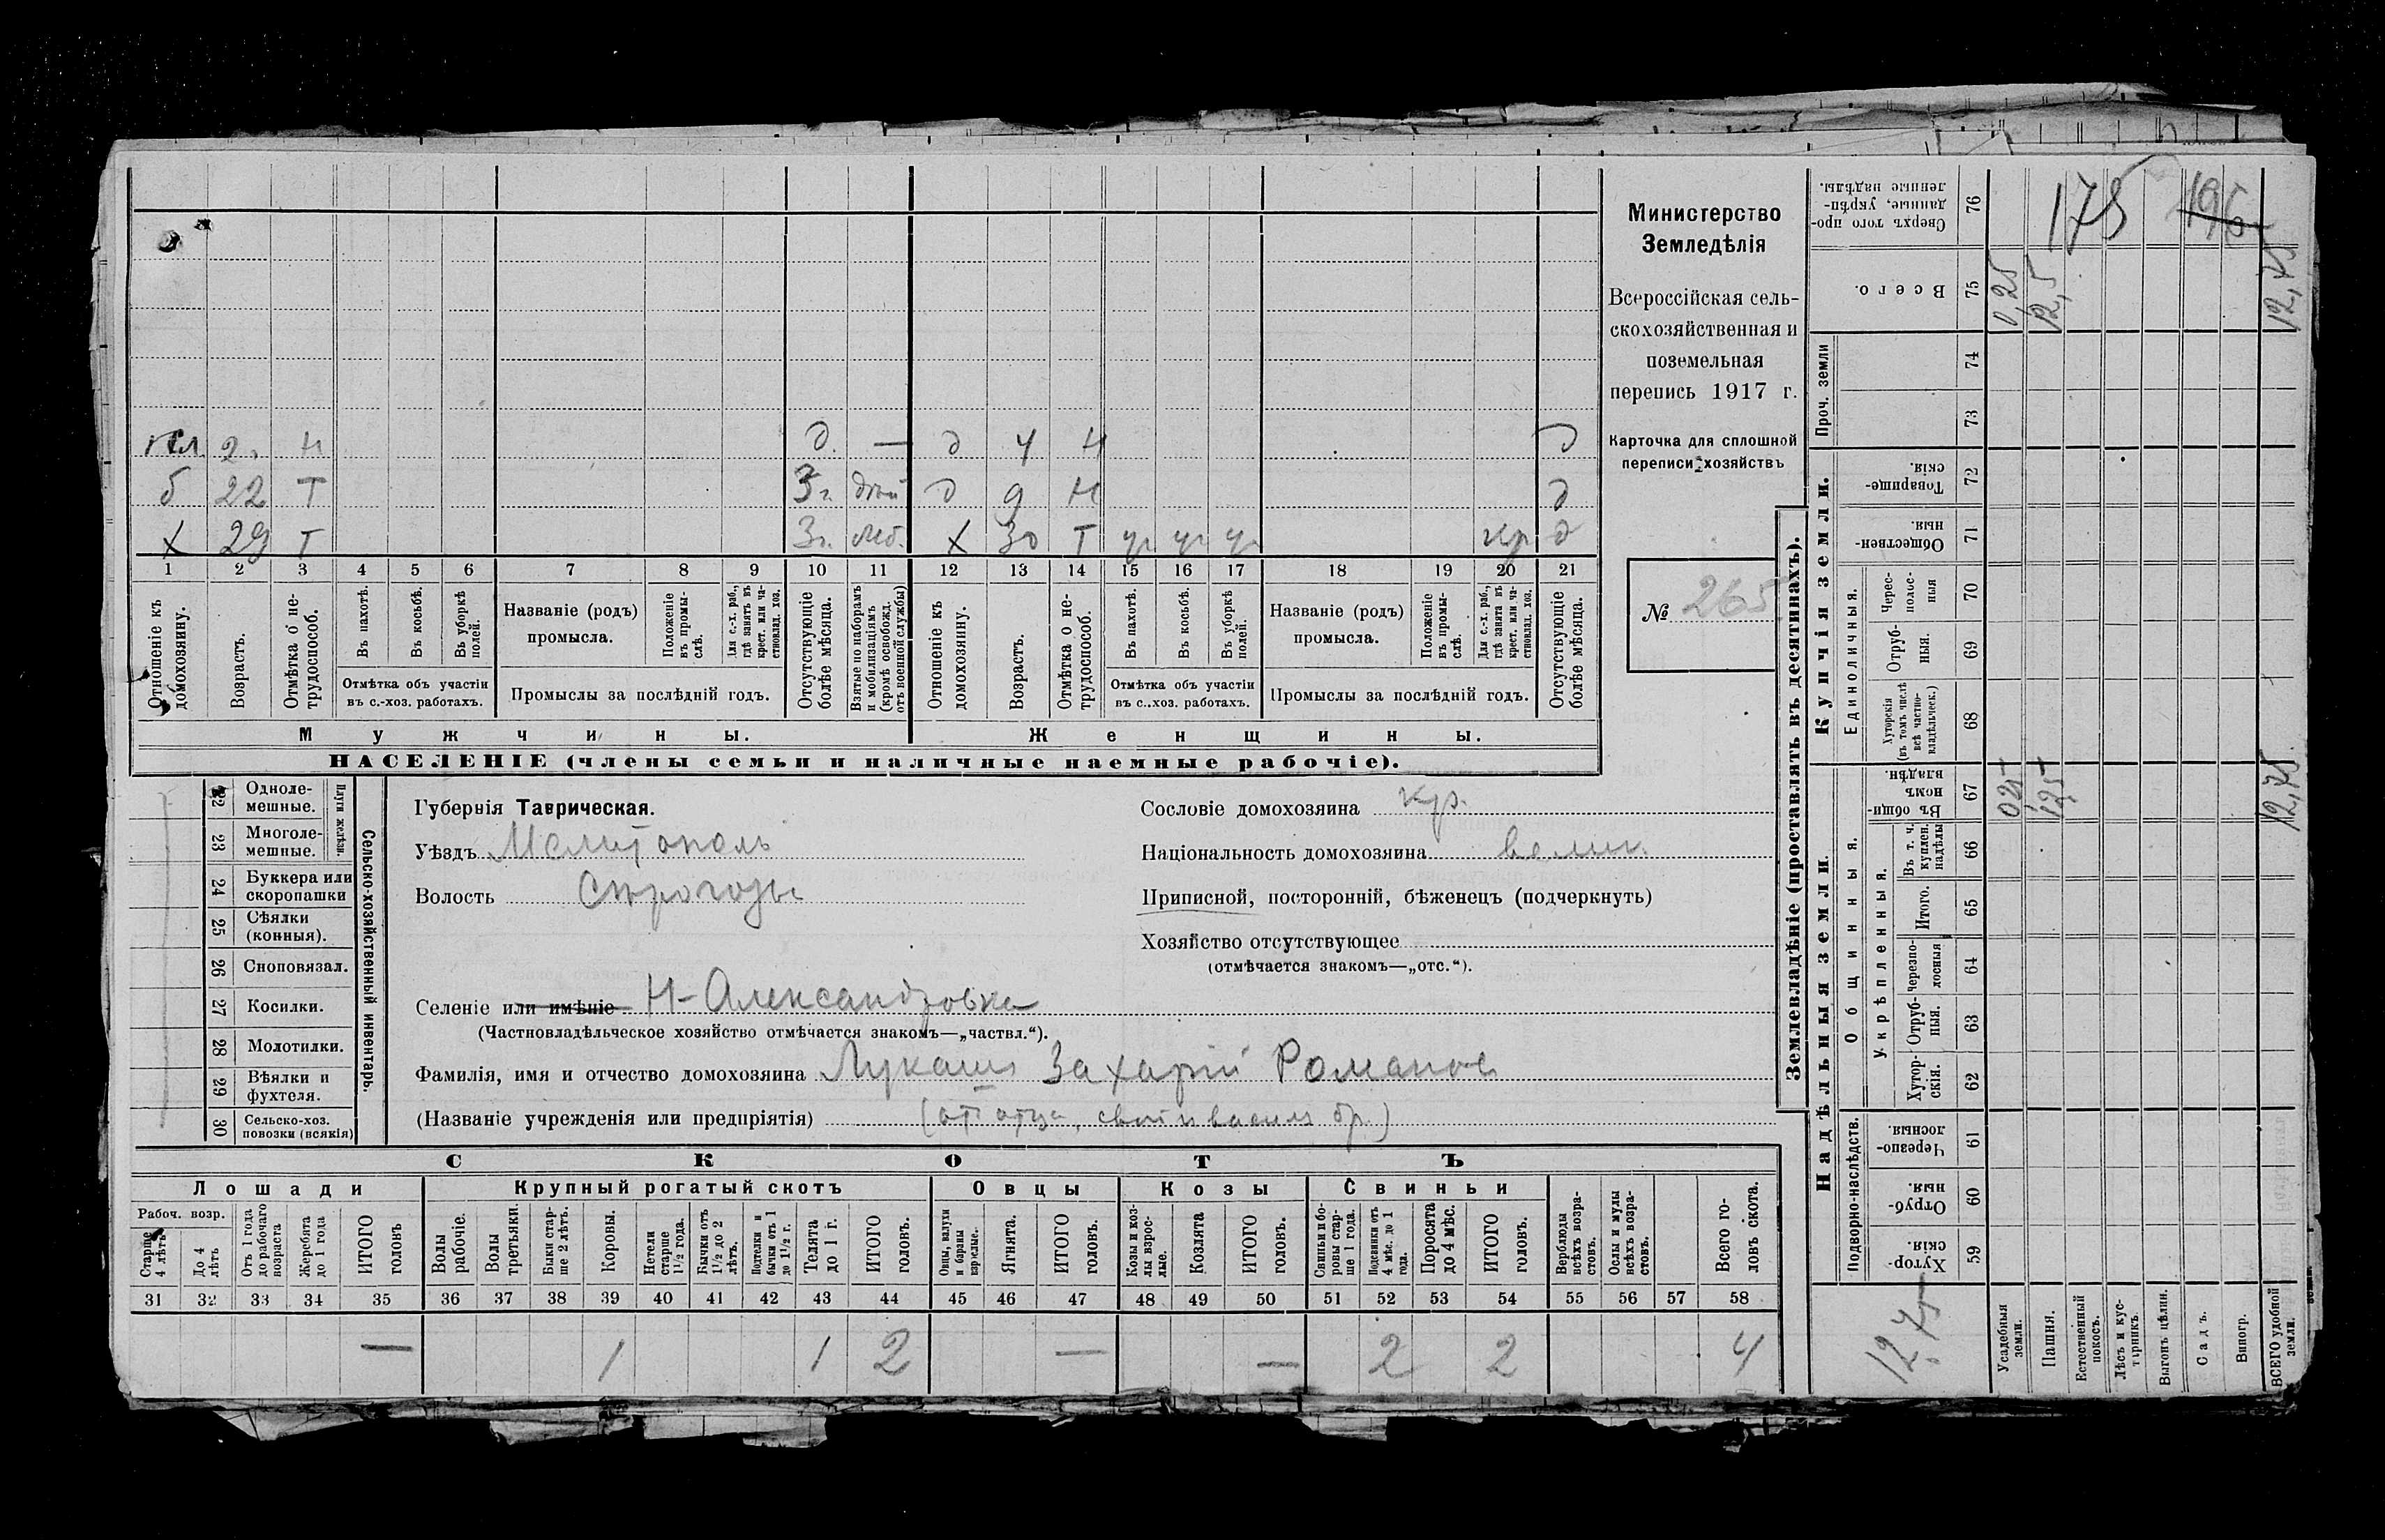 пл 2. н д. — д 4 н д
б 22 Т 3 г. дѣй д 9 н д
х 29 Т 3 г. моб. х 30 Т ч ч ч кр д
1 2 3 4 5 6 7 8 9 10 11 12 13 14 15 16 17 18 19 20 21
Отношеніе къ домохозяину.
Возрастъ.
Отмѣтка о нетрудоспособ.
Въ пахотѣ.
Въ косьбѣ.
Въ уборкѣ полей.
Отмѣтка объ участіи
въ с.-хоз. работахъ.
Названіе (родъ)
промысла.
Положеніе въ промыслѣ.
Для с.-х. раб., гдѣ занятъ въ крест. или частновлад. хоз.
Промыслы за послѣдній годъ.
Отсутствующіе болѣе мѣсяца.
Взятые по наборамъ и мобилизаціямъ (кромѣ освобожд. отъ военной службы)
Отношеніе къ домохозяину.
Возрастъ.
Отмѣтка о нетрудоспособ.
Въ пахотѣ.
Въ косьбѣ.
Въ уборкѣ полей.
Отмѣтка объ участіи
въ с..хоз. работахъ.
Названіе (родъ)
промысла.
Положеніе въ промыслѣ.
Для с.-х. раб., гдѣ занята въ крест. или частновлад. хоз.
Промыслы за послѣдній годъ.
Отсутствующіе болѣе мѣсяца.
Мужчины.
Женщины.
НАСЕЛЕНІЕ (члены семьи и наличные наемные рабочіе).
Министерство
Земледѣлія
Всероссійская сель-
скохозяйственная и
поземельная
перепись 1917 г.
Карточка для сплошной
переписи хозяйствъ
№ 265
22 Одноле-
мешные.
23 Многоле-
мешные.
Плуги желѣзн.
24 Буккера или
скоропашки
25 Сѣялки
(конныя).
26 Сноповязал.
27 Косилки.
28 Молотилки.
29 Вѣялки и
фухтеля.
30 Сельско-хоз.
повозки (всякія)
Сельско-хозяйственный инвентарь.
Губернія Таврическая.
Уѣздъ Мелитополь
Волость Сѣрогозы
Сословіе домохозяина кр.
Національность домохозяина велик.
Приписной, посторонній, бѣженецъ (подчеркнуть)
Хозяйство отсутствующее
(отмѣчается знакомъ—„отс.“).
Селеніе или имѣніе Н-Александровка
(Частновладѣльческое хозяйство отмѣчается знакомъ—„частвл.“).
Фамилія, имя и отчество домохозяина Лукаш Захарій Романов
(Названіе учрежденія или предпріятія) (от отца, свой и васил бр.)
СКОТЪ
Лошади
Крупный рогатый скотъ
Овцы
Козы
Свиньи
Рабоч. возр.
Старше 4 лѣтъ
До 4 лѣтъ
Отъ 1 года до рабочаго возраста
Жеребята до 1 года
ИТОГО головъ
Волы рабочіе.
Волы третьяки.
Быки старше 2 лѣтъ.
Коровы.
Нетели старше 1½ года.
Бычки отъ 1½ до 2 лѣтъ.
Подтелки и бычки отъ 1 до 1½ г.
Телята до 1 г.
ИТОГО головъ.
Овцы, валухи и бараны взрослые.
Ягнята.
ИТОГО головъ.
Козы и козлы взрослые.
Козлята
ИТОГО головъ.
Свиньи и боровы старше 1 года.
Подсвинки отъ 4 мѣс. до 1 года.
Поросята до 4 мѣс.
ИТОГО головъ.
Верблюды всѣхъ возрастовъ.
Ослы и мулы всѣхъ возрастовъ.
Всего головъ скота.
31 32 33 34 35 36 37 38 39 40 41 42 43 44 45 46 47 48 49 50 51 52 53 54 55 56 57 58
— 1 1 2 — — 2 2 4
Землевладѣніе (проставлять въ десятинахъ).
Надѣльныя земли.
Купчія земли.
Проч. земли
Подворно-наслѣдств.
Общинныя.
Укрѣпленныя.
Единоличныя.
Сверхъ того проданные, укрѣпленные надѣлы. 76
Всего. 75
74
73
Товарищескія. 72
Общественныя. 71
Чересполосныя 70
Отрубныя. 69
Хуторскія (въ томъ числѣ всѣ частновладѣльческ.) 68
Въ общинномъ владѣн. 67
Въ т. ч. куплен. надѣлы 66
Итого. 65
Черезполосныя 64
Отрубныя. 63
Хуторскія. 62
Черезполосныя. 61
Отрубныя. 60
Хуторскія. 59
Усадебныя земли.
Пашня.
Естественный покосъ.
Лѣсъ и кустарникъ.
Выгонъ цѣлин.
Садъ.
Виногр.
ВСЕГО удобной земли.
175
0,25
12,5
12,75
025
12,5
12,75
12.75